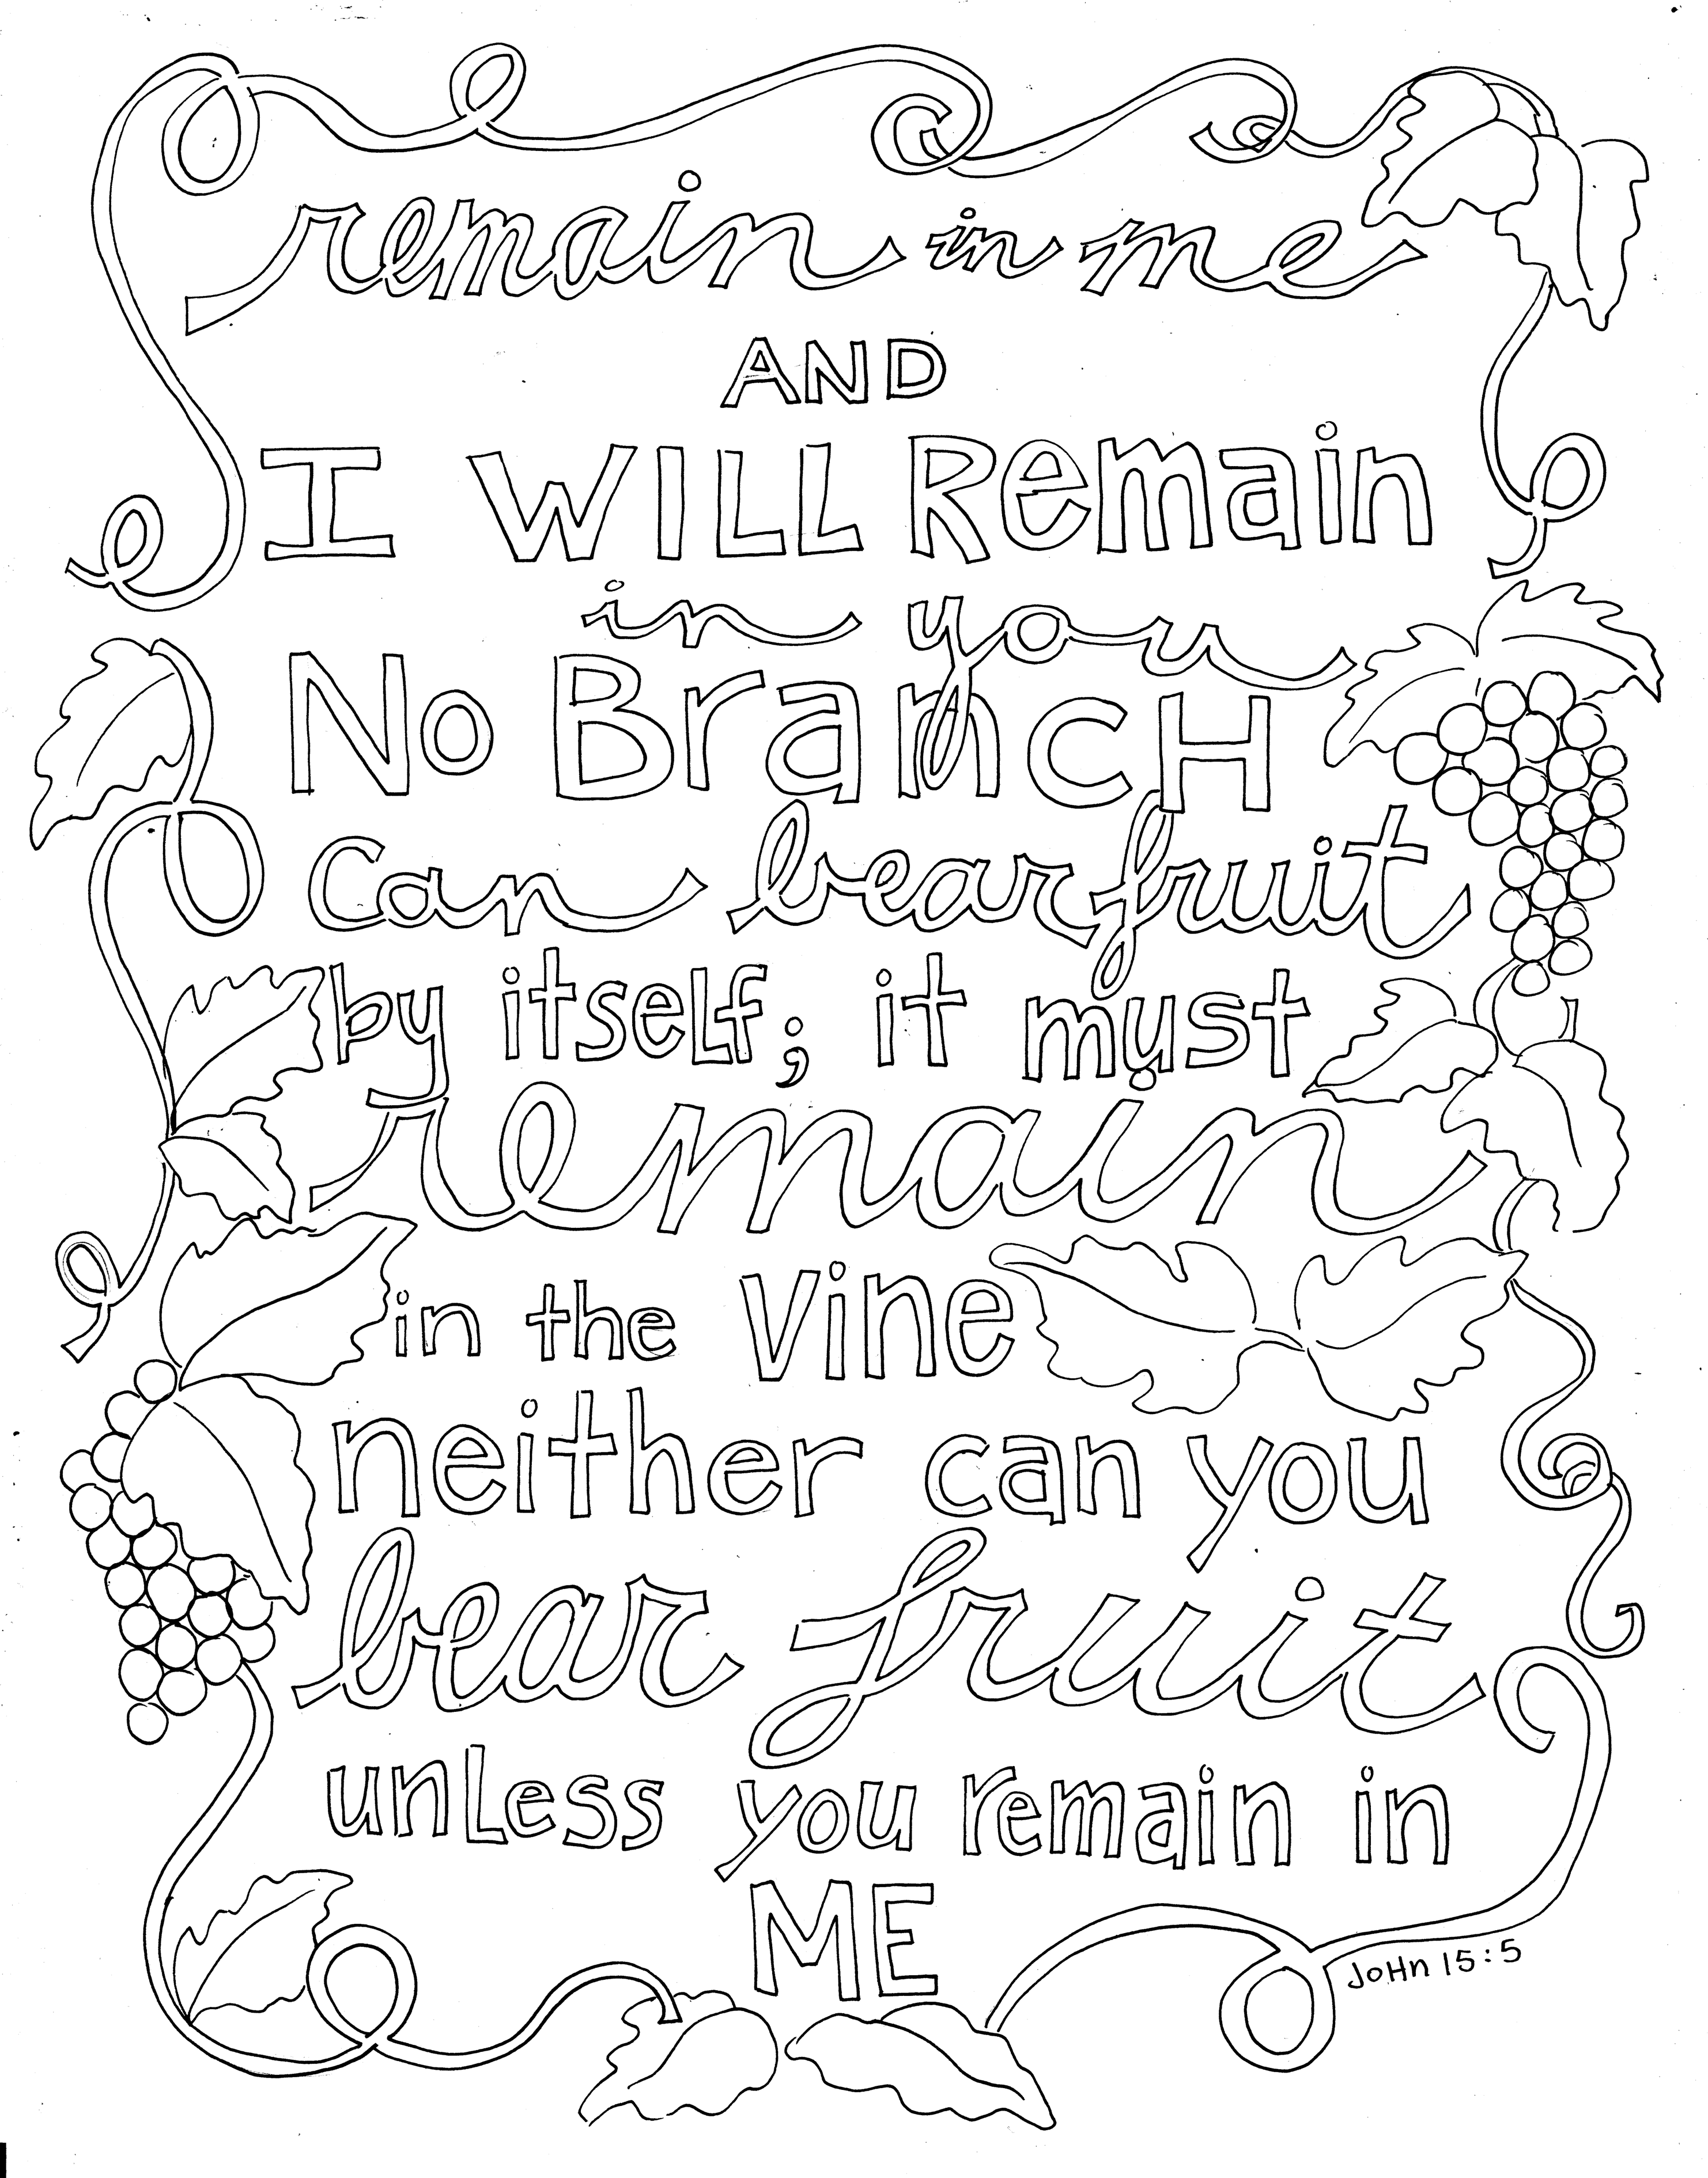 remain in me
AND
I WILL Remain
in you
No BrancH
Can bear fruit
by itself; it must
remain
in the Vine
neither can you
bear fruit
unLess you remain in
ME
JoHn 15:5